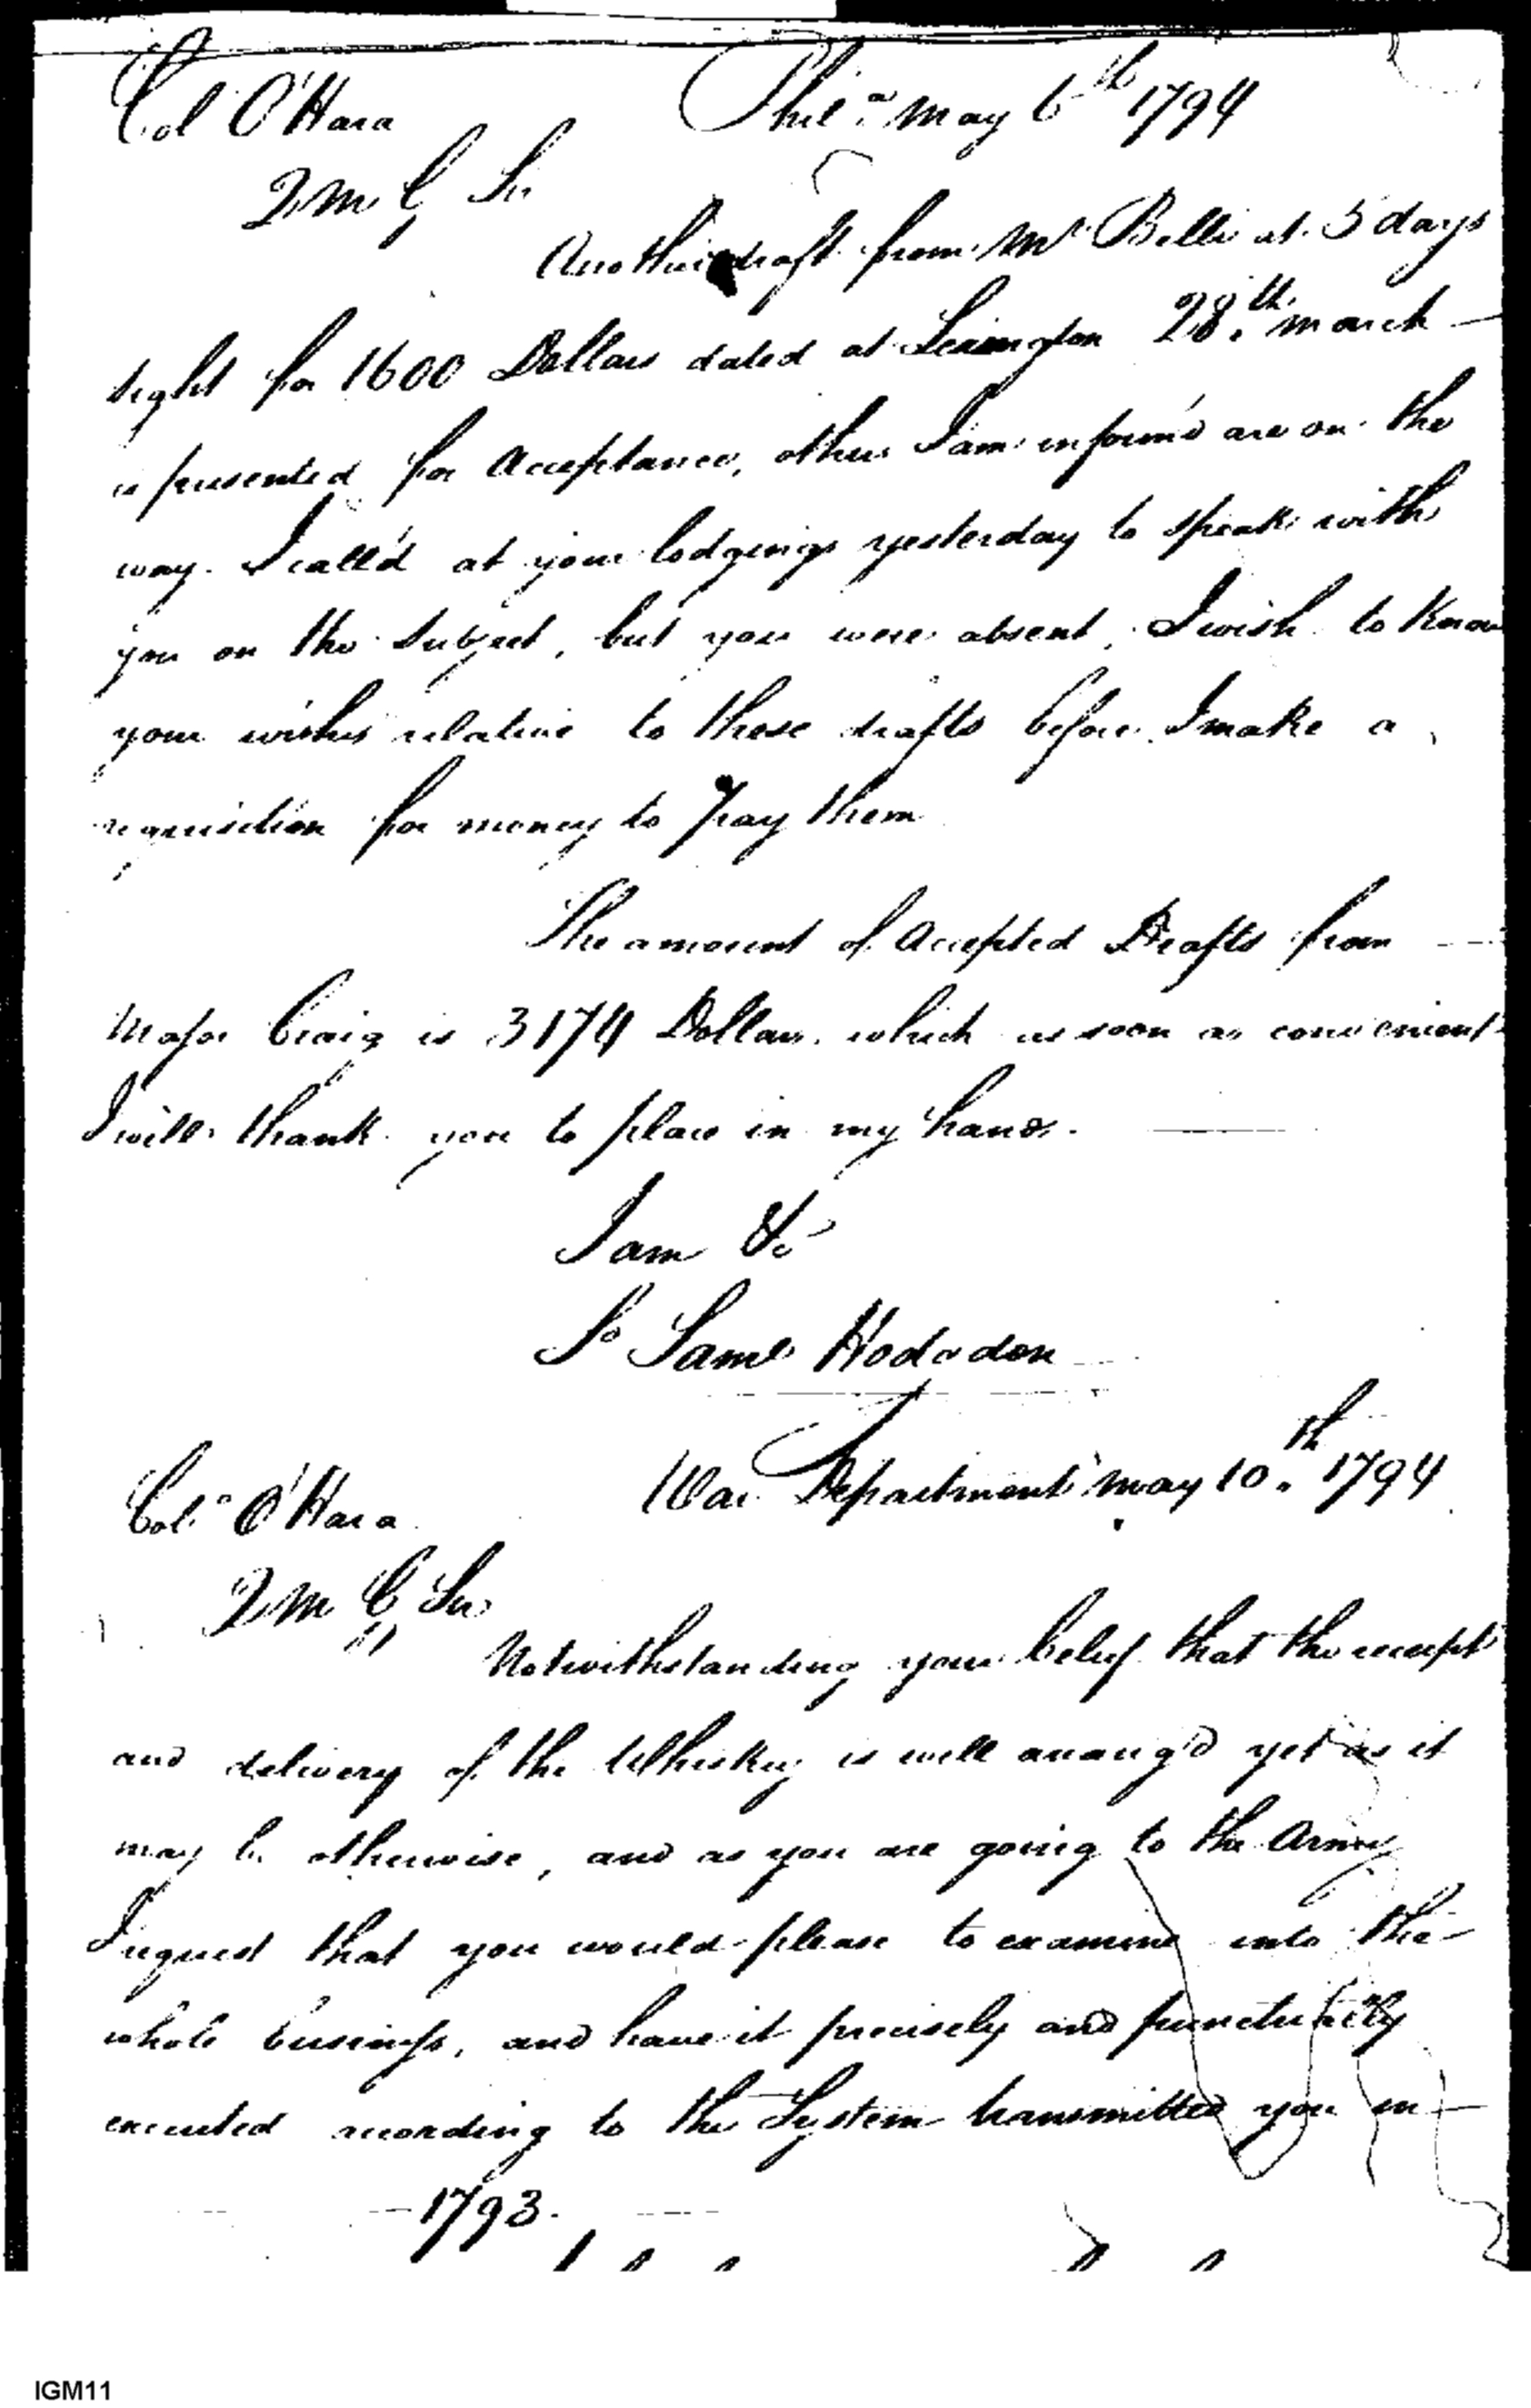 Col O'Hara Phila. May 6th 1794
Q M G Sir
Another draft from Mr Belli at 5 days
sight for 1600 Dollars dated at Lexington 28.th March
is presented for Acceptance, others I am inform'd are on the
way. I call'd at your lodgings yesterday to speak with
you on the Subject, but you were absent, I wish to know
your wishes relative to these drafts before I make a
requisition for money to pay them
The amount of Accepted Drafts from
Major Craig is 3174 Dollars. which as soon as convenient
I will thank you to place in my hands.
I am &c
So Saml Hodgdon
Colo O'Hara War Department May 10.th 1794
Q M G Sir
Notwithstanding your belief that the receipt
and delivery of the Whiskey is well arrang'd yet as it
may be otherwise, and as you are going to the Army
I request that you would please to examine into the
whole business, and have it precisely and punctually
executed according to the System transmitted you in
1793.
IGM11